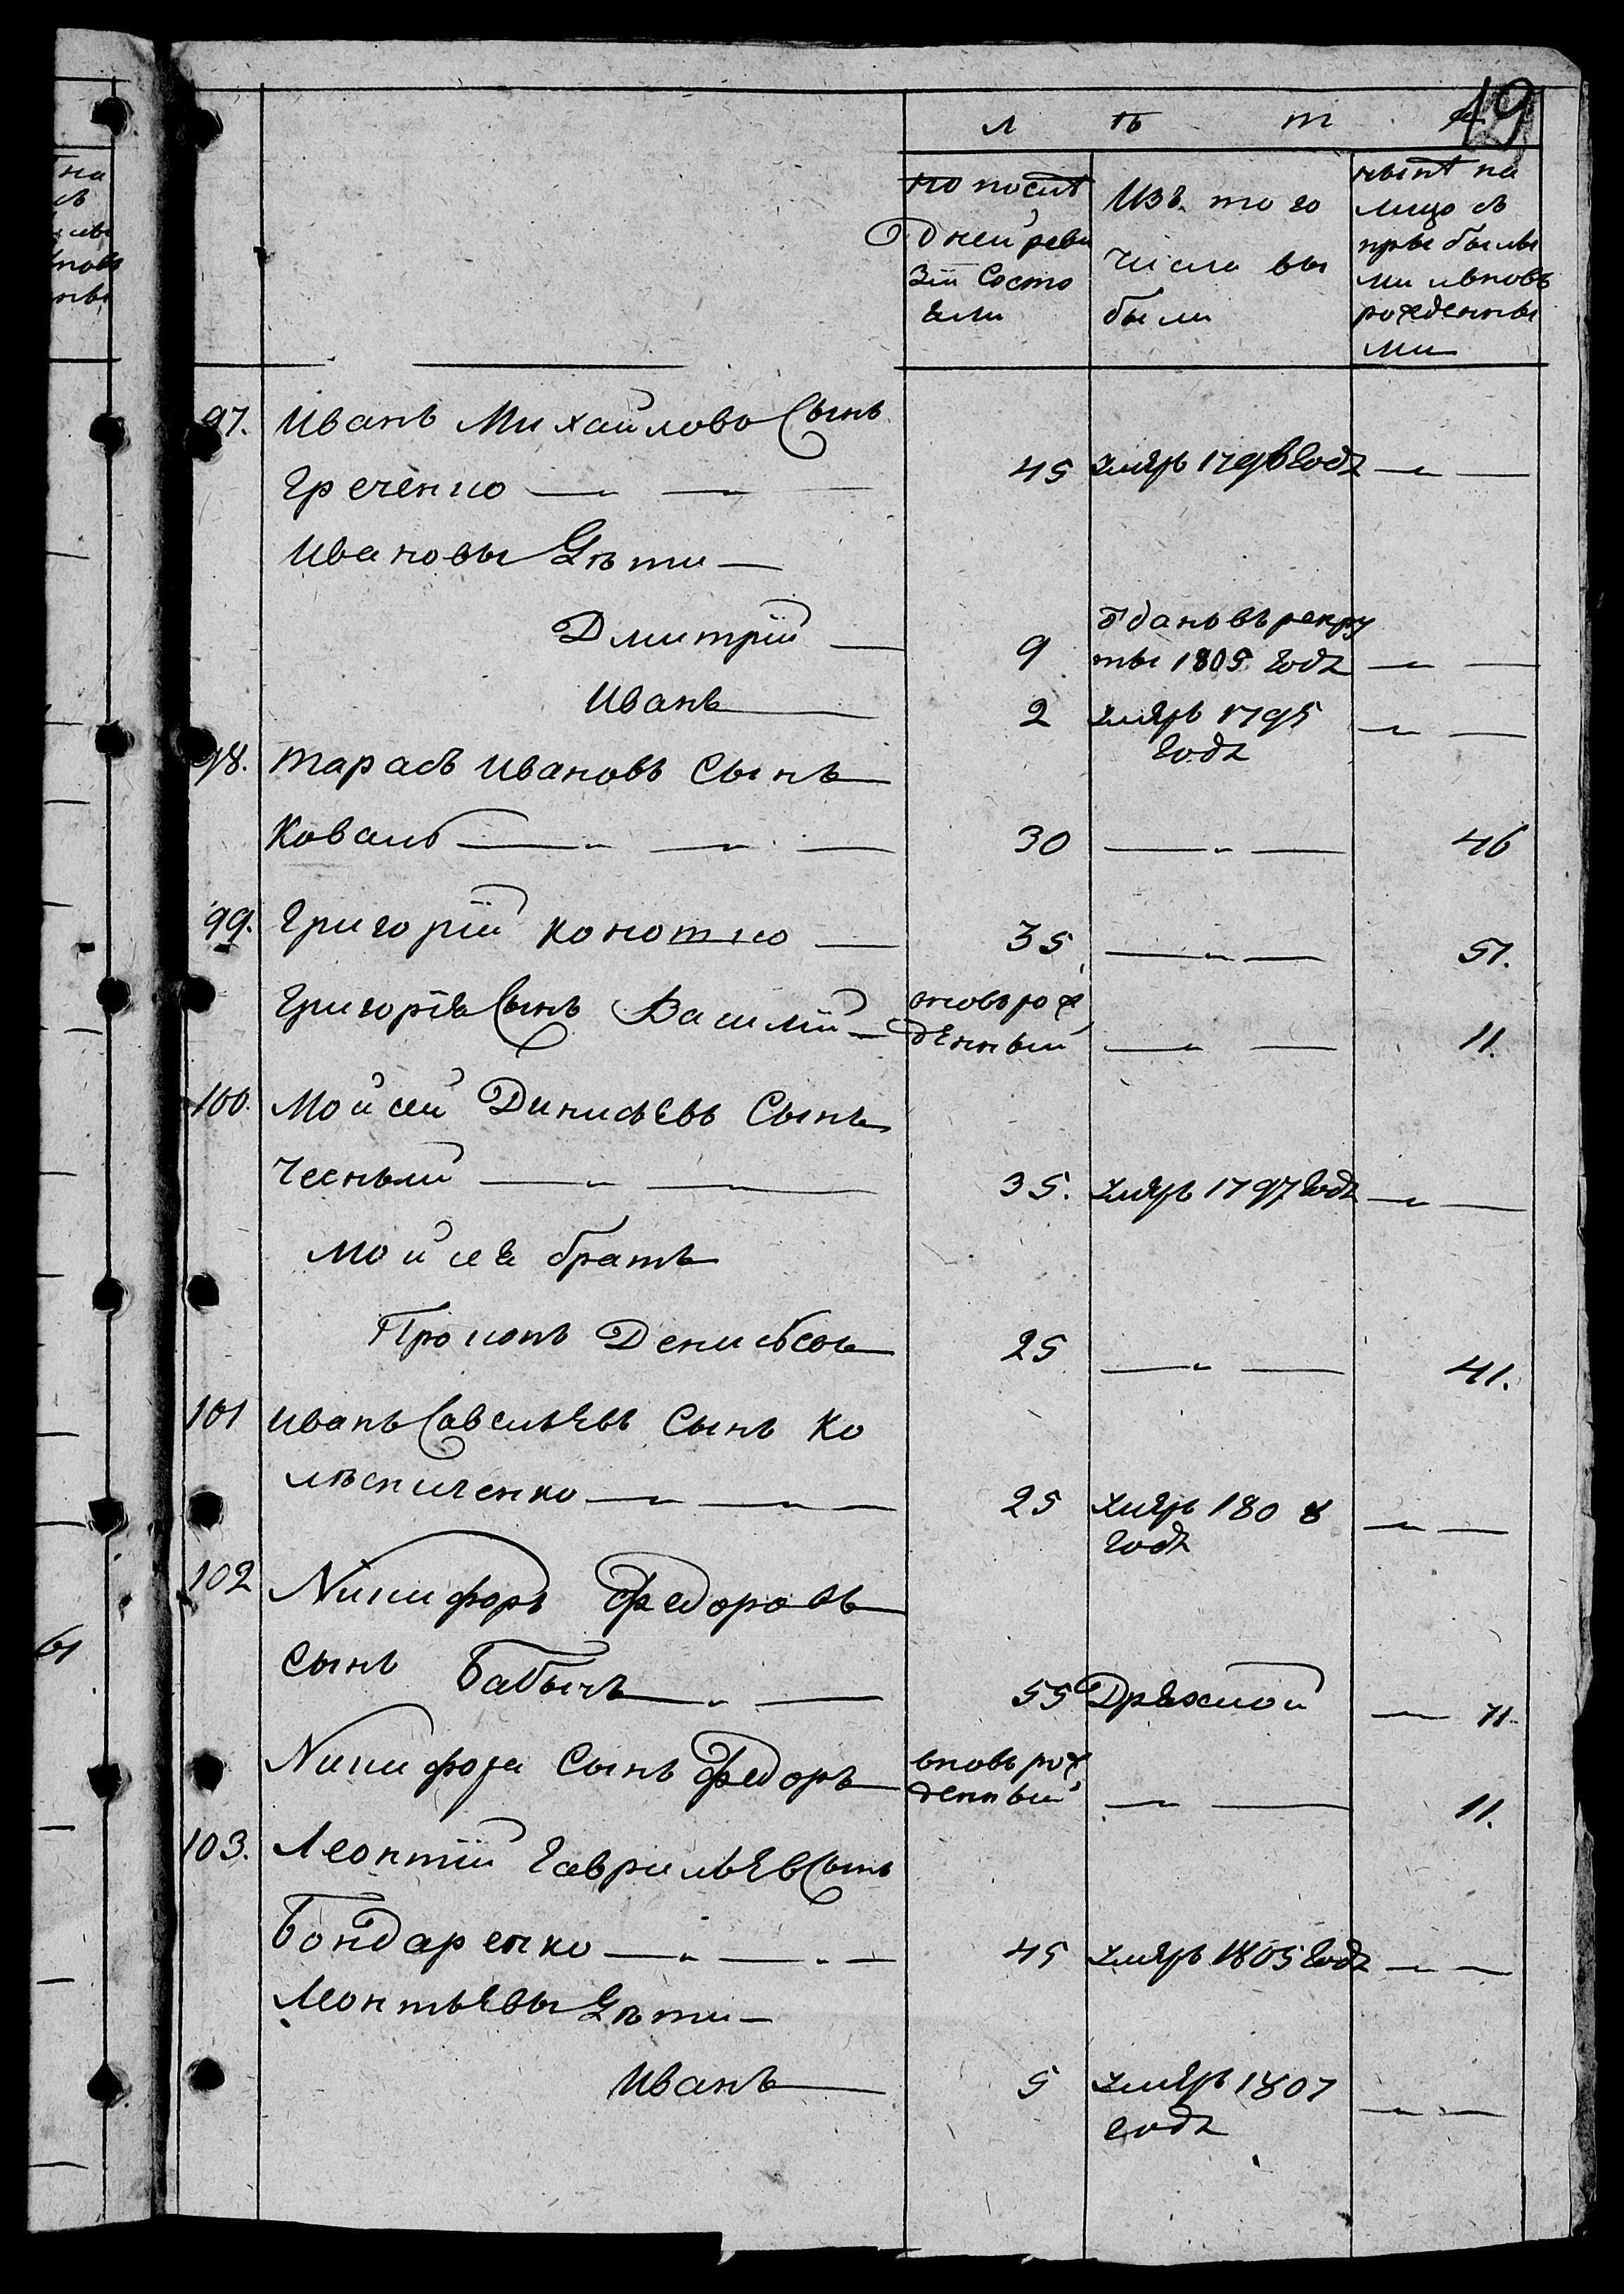 19
л ѣ т а
по послѣ
дней реви
зіи состо
яли
Изъ того
числа вы
были
нынѣ на
лицо съ
прибылы
ми и вновь
рожденны
ми
97. Иванъ Михайловъ Сынъ
Греченко 45 умеръ 1796 годѣ
Ивановы Дѣти
Дмитрій 9 ѿданъ въ рекру
ты 1805 годѣ
Иванъ 2 умеръ 1795
годѣ
98. Тарасъ Ивановъ Сынъ
Коваль 30 46
99. Григорій Конотко 35 51.
Григорія Сынъ Василій вновь рож
денный 11.
100. Мойсей Динисѣевъ Сынъ
Чесный 35. умеръ 1797 годѣ
Мойсея братъ
Прокопъ Денисѣевъ 25 41.
101 Иванъ Савельевъ Сынъ Ко
лѣсниченко 25 умеръ 1808
годѣ
102 Никифоръ Федоровъ
Сынъ Бабычъ 55 Дряхлой 71.
Никифора Сынъ Федоръ вновь рож
денный 11.
103. Леонтій Гаврильев Сынъ
Бондаренко 45 умеръ 1805 годѣ
Леонтьевы Дѣти
Иванъ 5 умеръ 1807
годѣ